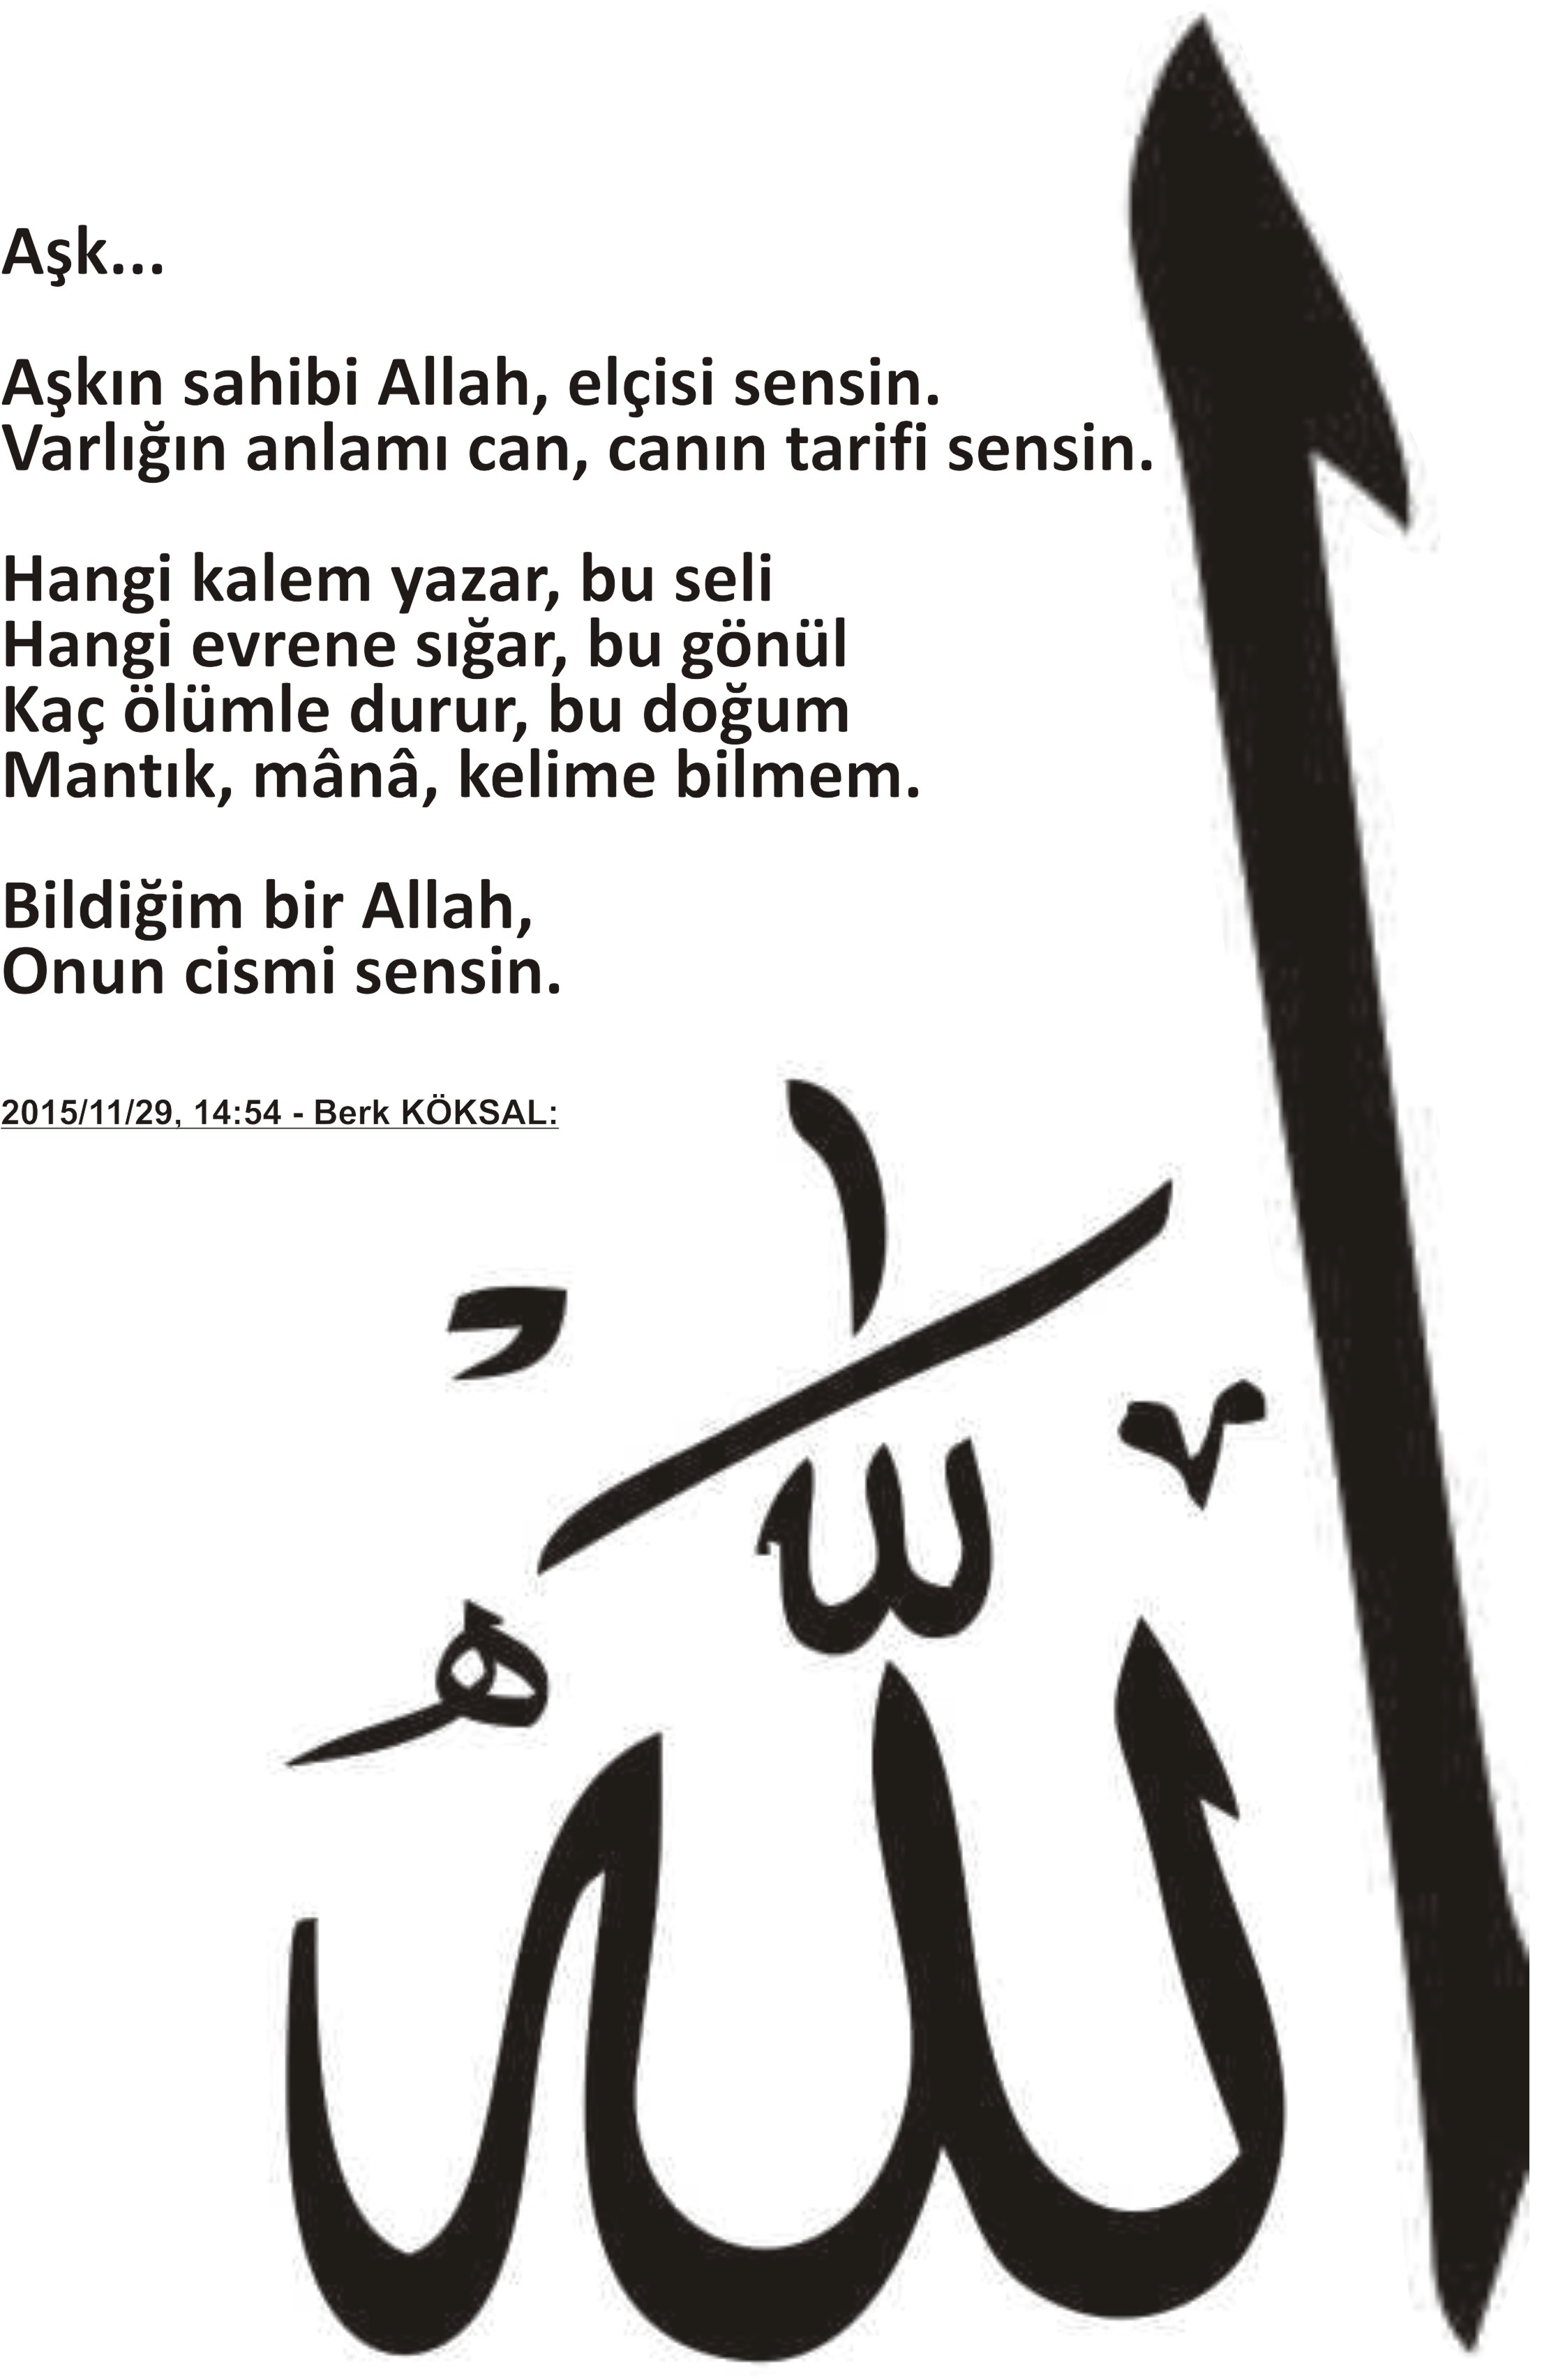 Aşk...
Aşkın sahibi Allah, elçisi sensin.
Varlığın anlamı can, canın tarifi sensin.
Hangi kalem yazar, bu seli
Hangi evrene sığar, bu gönül
Kaç ölümle durur, bu doğum
Mantık, mânâ, kelime bilmem.
Bildiğim bir Allah,
Onun cismi sensin.
2015/11/29, 14:54 - Berk KÖKSAL:
الله